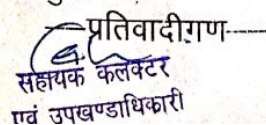 —प्रतिवादीगण----
सहायक कलेक्टर
एवं उपखण्डाधिकारी